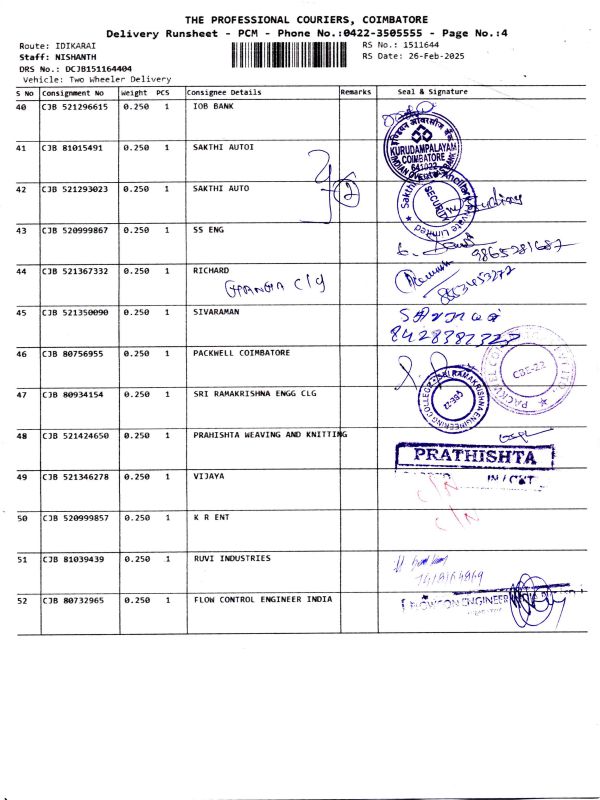 THE PROFESSIONAL COURIERS, COIMBATORE
Delivery Runsheet - PCM - Phone No.:0422-3505555 - Page No.:4
Route: IDIKARAI RS No.: 1511644
Staff: NISHANTH RS Date: 26-Feb-2025
DRS No.: DCJB151164404
Vehicle: Two Wheeler Delivery
S No Consignment No Weight PCS Consignee Details Remarks Seal & Signature
40 CJB 521296615 0.250 1 IOB BANK
KURUDAMPALAYAM
COIMBATORE
641022
41 CJB 81015491 0.250 1 SAKTHI AUTOI
42 CJB 521293023 0.250 1 SAKTHI AUTO
2
SECURITY
43 CJB 520999867 0.250 1 SS ENG
9865381687
44 CJB 521367332 0.250 1 RICHARD
45 CJB 521350090 0.250 1 SIVARAMAN
46 CJB 80756955 0.250 1 PACKWELL COIMBATORE
CBE-22
47 CJB 80934154 0.250 1 SRI RAMAKRISHNA ENGG CLG
SRI RAMAKRISHNA ENGINEERING COLLEGE
CBE-22
48 CJB 521424650 0.250 1 PRAHISHTA WEAVING AND KNITTING
PRATHISHTA
49 CJB 521346278 0.250 1 VIJAYA
C/N
50 CJB 520999857 0.250 1 K R ENT
C/N
51 CJB 81039439 0.250 1 RUVI INDUSTRIES
52 CJB 80732965 0.250 1 FLOW CONTROL ENGINEER INDIA